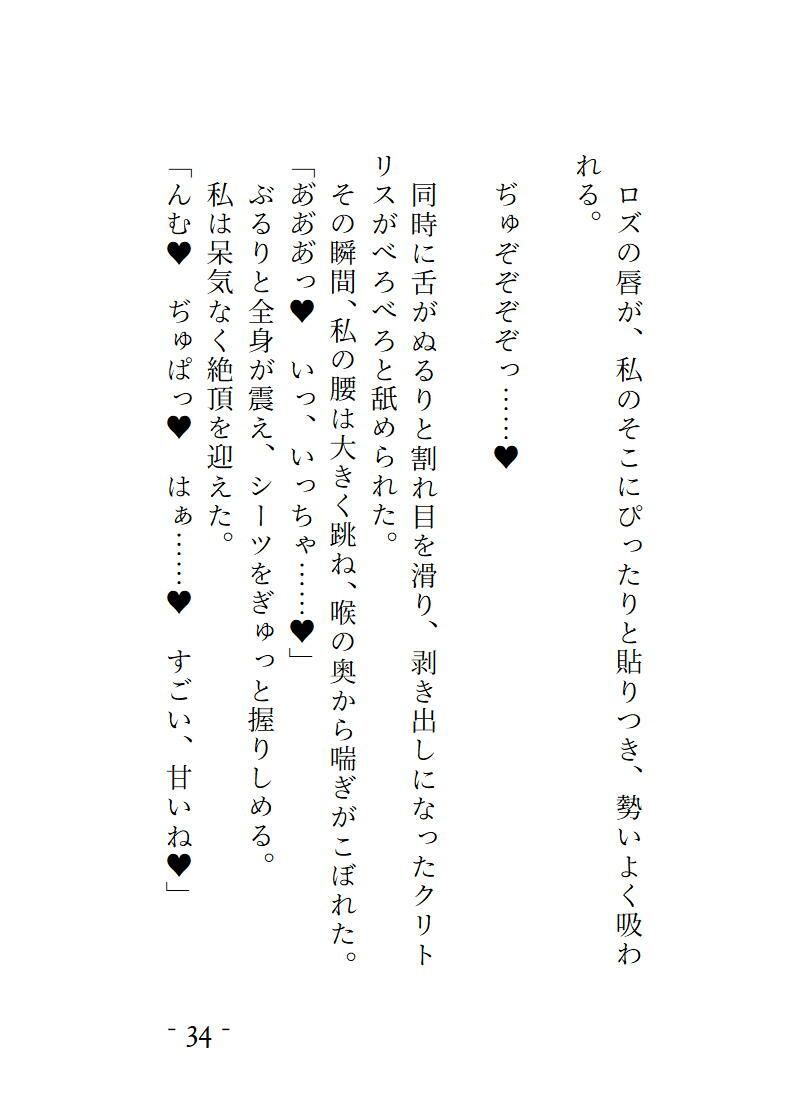 ロズの唇が、私のそこにぴったりと貼りつき、勢いよく吸わ
れる。
ぢゅぞぞぞぞっ……♥
同時に舌がぬるりと割れ目を滑り、剥き出しになったクリト
リスがべろべろと舐められた。
その瞬間、私の腰は大きく跳ね、喉の奥から喘ぎがこぼれた。
「あ゙あ゙あ゙っ♥　いっ、いっちゃ……♥」
ぶるりと全身が震え、シーツをぎゅっと握りしめる。
私は呆気なく絶頂を迎えた。
「んむ♥　ぢゅぱっ♥　はぁ……♥　すごい、甘いね♥」
- 34 -